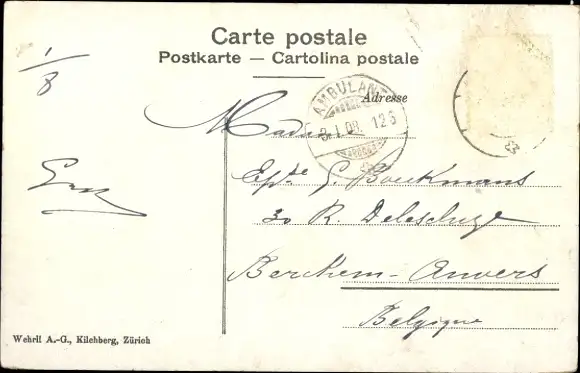 Carte postale
Postkarte — Cartolina postale
1/8
Adresse
AMBULANT
3.I.08. 126
Madame
Epse. G. Bouckmans
30 R. Delescluze
Berckem-Anvers
Belgique
Wehrli A.-G., Kilchberg, Zürich